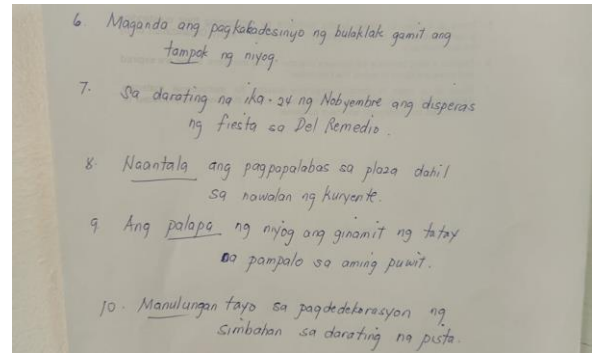 6. Maganda ang pagkakadesinyo ng bulaklak gamit ang
tampok ng niyog.
7. Sa darating na ika-24 ng Nobyembre ang disperas
ng fiesta sa Del Remedio.
8. Naantala ang pagpapalabas sa plaza dahil
sa nawalan ng kuryente.
9. Ang palapa ng niyog ang ginamit ng tatay
na pampalo sa aming puwit.
10. Manulungan tayo sa pagdedekorasyon ng
simbahan sa darating na pista.